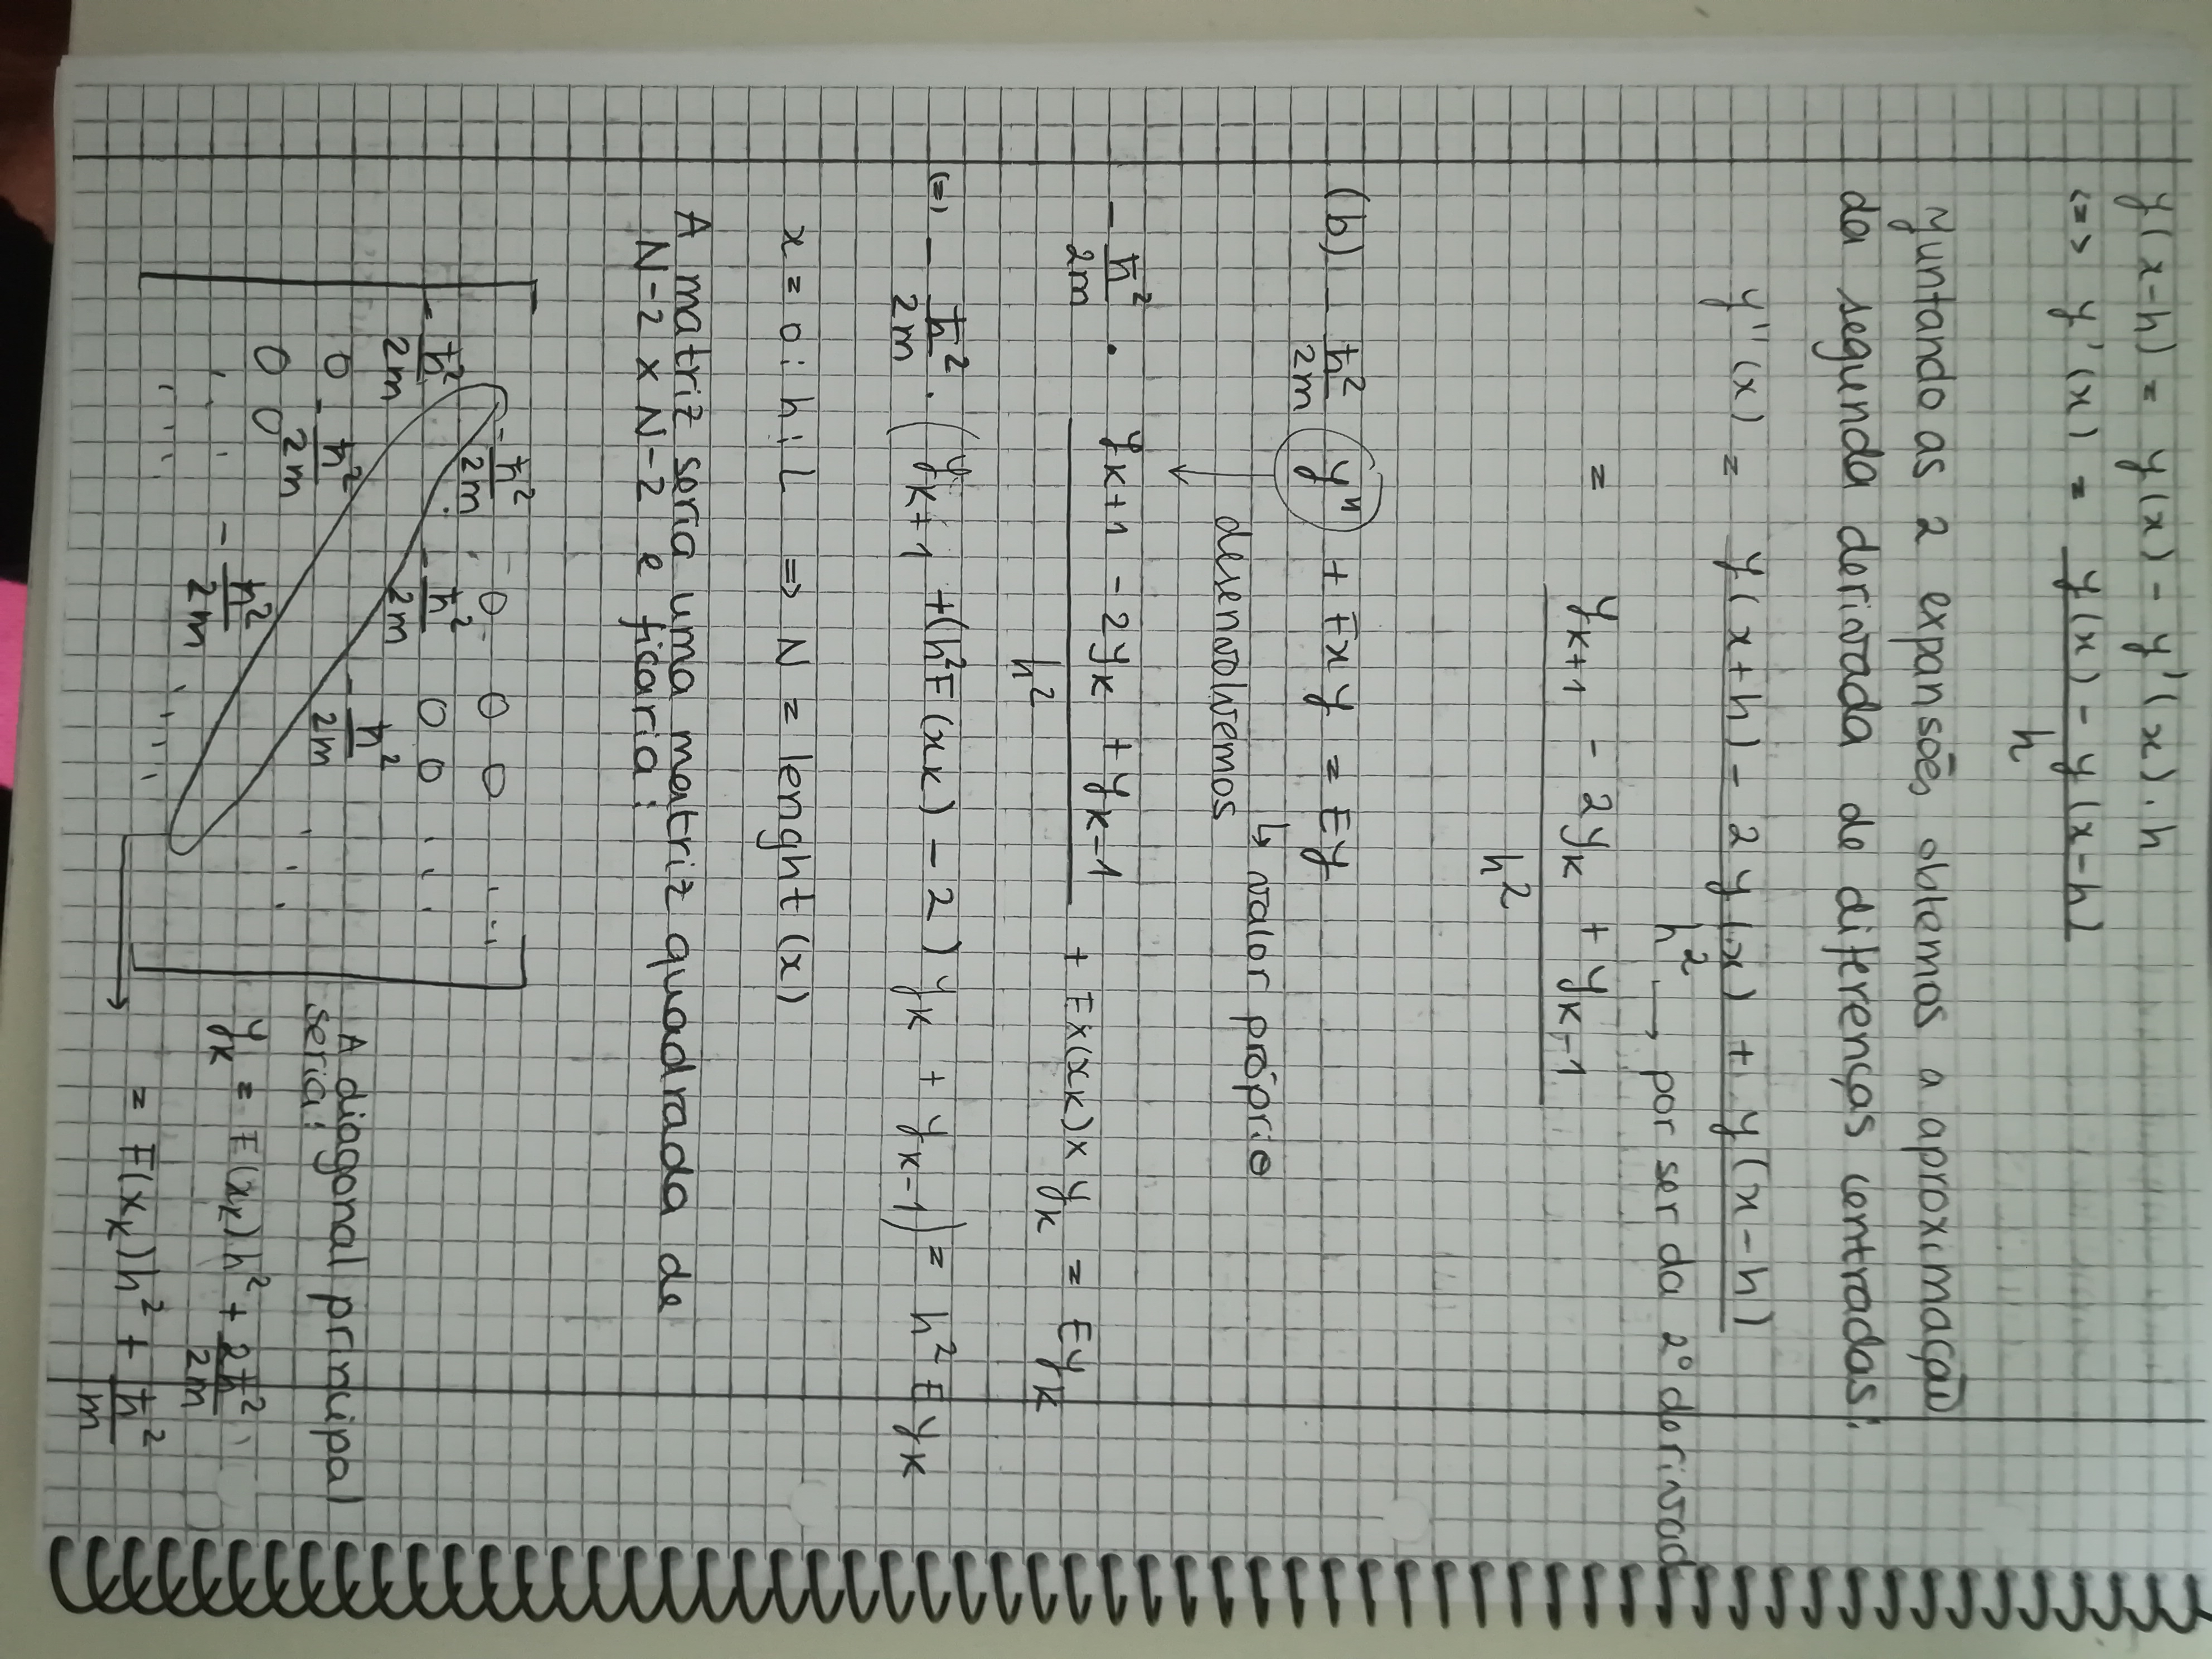 y(x-h) = y(x) - y'(x) . h
<=> y'(x) = (y(x) - y(x-h)) / h
yuntando as 2 expansões obtemos a aproximação
da segunda derivada de diferenças centradas:
y''(x) = (y(x+h) - 2y(x) + y(x-h)) / h² → por ser da 2º derivad
= (y_{k+1} - 2y_k + y_{k-1}) / h²
(b) - ħ²/2m y'' + Fxy = Ey
↳ valor próprio
desenvolvemos
- ħ²/2m . (y_{k+1} - 2y_k + y_{k-1}) / h² + F×(x_k)× y_k = Ey_k
(=) - ħ²/2m . (y_{k+1} + (h²F(x_k) - 2) y_k + y_{k-1}) = h² E y_k
x = 0:h:L => N = lenght (x)
A matriz seria uma matriz quadrada de
N-2 x N-2 e ficaria:
- ħ²/2m 0 0 0 ...
- ħ²/2m - ħ²/2m 0 0 ...
0 - ħ²/2m - ħ²/2m ...
0 0 - ħ²/2m
... ...
A diagonal principal
seria:
y_k = F(x_k)h² + 2ħ²/2m
= F(x_k)h² + ħ²/m